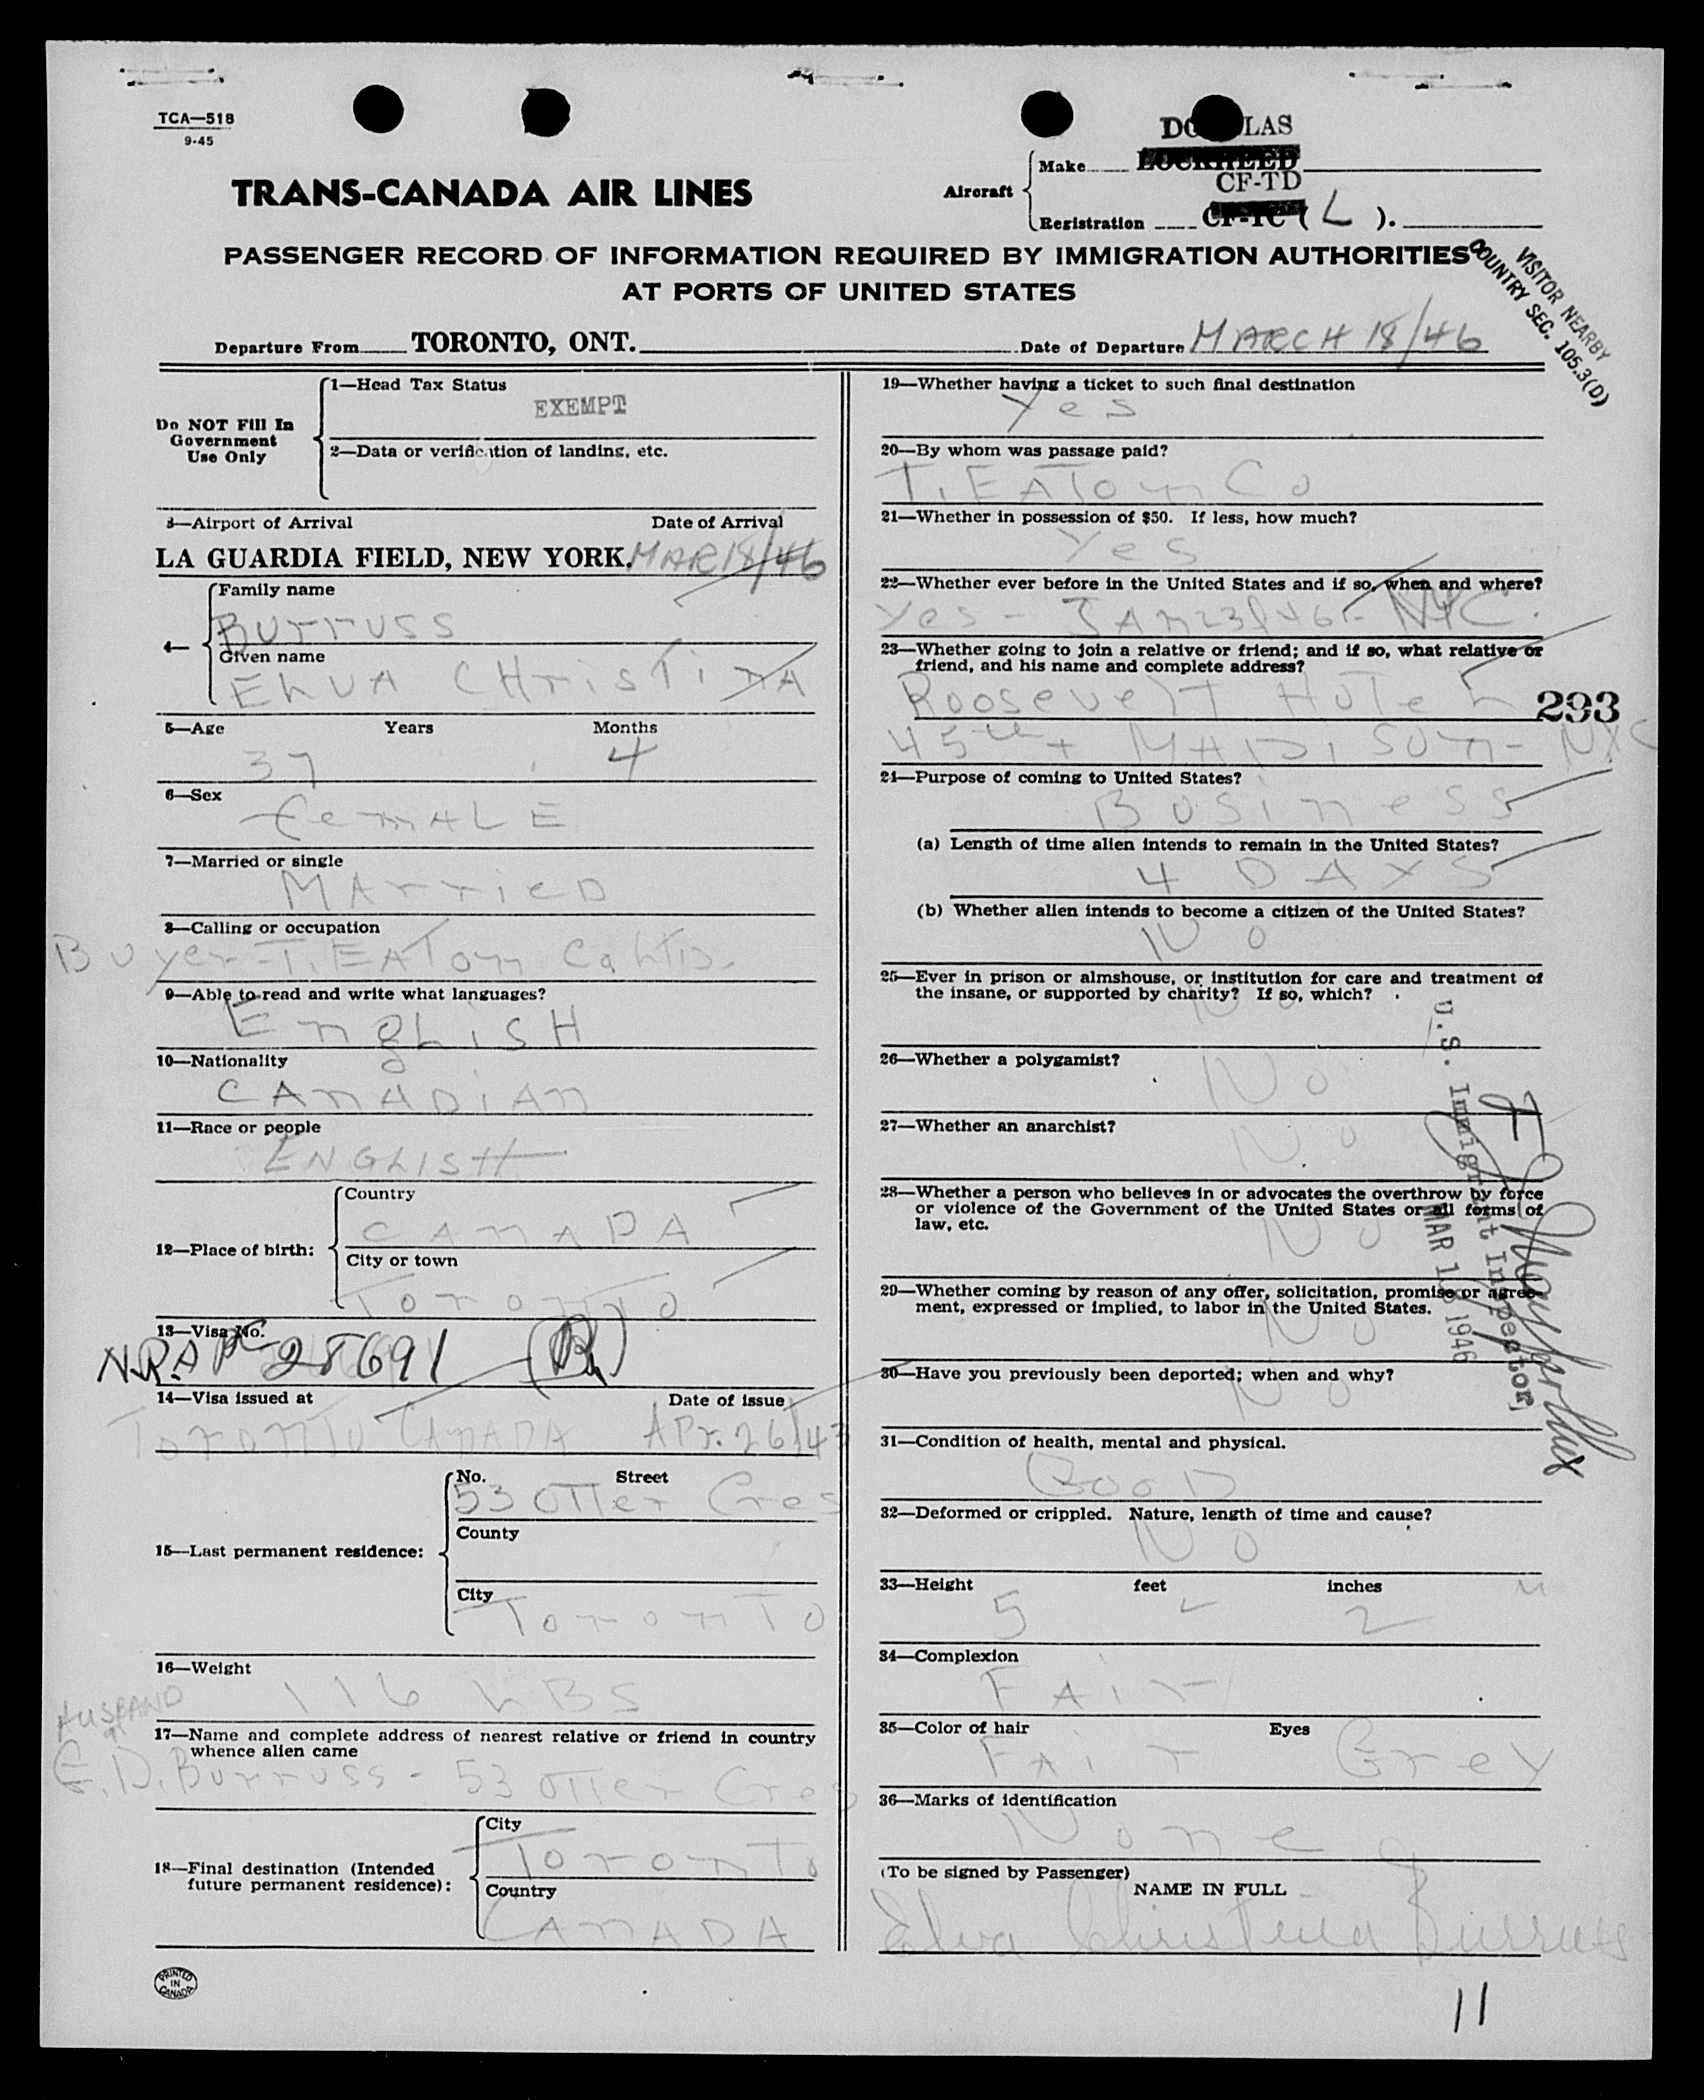 TCA—518
9-45
TRANS-CANADA AIR LINES
Aircraft
DOUGLAS
Make LOCKHEED
CF-TD
Registration CF-TC ( L ).
PASSENGER RECORD OF INFORMATION REQUIRED BY IMMIGRATION AUTHORITIES
AT PORTS OF UNITED STATES
VISITOR NEARBY
COUNTRY SEC. 105.3(D)
Departure From TORONTO, ONT. Date of Departure MARCH 18/46
Do NOT Fill In
Government
Use Only
1—Head Tax Status
EXEMPT
2—Data or verification of landing, etc.
3—Airport of Arrival Date of Arrival
LA GUARDIA FIELD, NEW YORK. MAR 18/46
4—
Family name
Burruss
Given name
ELVA CHRISTINA
5—Age Years Months
37 4
6—Sex
FemALE
7—Married or single
MArrieD
8—Calling or occupation
Buyer - T. EATON Co LTD.
9—Able to read and write what languages?
EngLiSH
10—Nationality
CANADiAN
11—Race or people
ENGLISH
12—Place of birth:
Country
CANADA
City or town
Toronto
13—Visa No.
N.R.A. 28691
14—Visa issued at Date of issue
Toronto CANADA Apr. 26/43
15—Last permanent residence:
No. Street
53 Otter Cres
County
City
Toronto
16—Weight
116 LBS
HUSBAND
17—Name and complete address of nearest relative or friend in country
whence alien came
G. D. Burruss - 53 Otter Cres
18—Final destination (Intended
future permanent residence):
City
Toronto
Country
CANADA
PRINTED
IN
CANADA
19—Whether having a ticket to such final destination
Yes
20—By whom was passage paid?
T. EATON Co
21—Whether in possession of $50. If less, how much?
Yes
22—Whether ever before in the United States and if so, when and where?
Yes - JAN 23/46 - NYC.
23—Whether going to join a relative or friend; and if so, what relative or
friend, and his name and complete address?
Roosevelt Hotel
293
45th + MADISON - NYC
24—Purpose of coming to United States?
Business
(a) Length of time alien intends to remain in the United States?
4 DAYS
(b) Whether alien intends to become a citizen of the United States?
No
25—Ever in prison or almshouse, or institution for care and treatment of
the insane, or supported by charity? If so, which?
No
26—Whether a polygamist?
No
27—Whether an anarchist?
No
28—Whether a person who believes in or advocates the overthrow by force
or violence of the Government of the United States or all forms of
law, etc.
No
29—Whether coming by reason of any offer, solicitation, promise or agree-
ment, expressed or implied, to labor in the United States.
No
30—Have you previously been deported; when and why?
No
U.S. Immigrant Inspector
MAR 18 1946
31—Condition of health, mental and physical.
GooD
32—Deformed or crippled. Nature, length of time and cause?
No
33—Height feet inches
5 2
34—Complexion
FAir
35—Color of hair Eyes
FAir Grey
36—Marks of identification
None
(To be signed by Passenger)
NAME IN FULL
Elva Christina Burruss
11